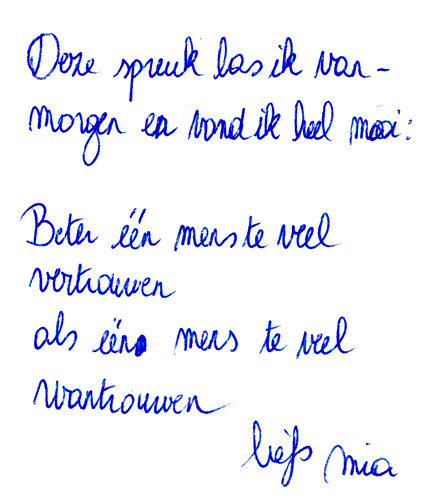 Deze spreuk las ik van-
morgen en vond ik heel mooi:
Beter één mens te veel
vertrouwen
als één mens te veel
wantrouwen
liefs mia